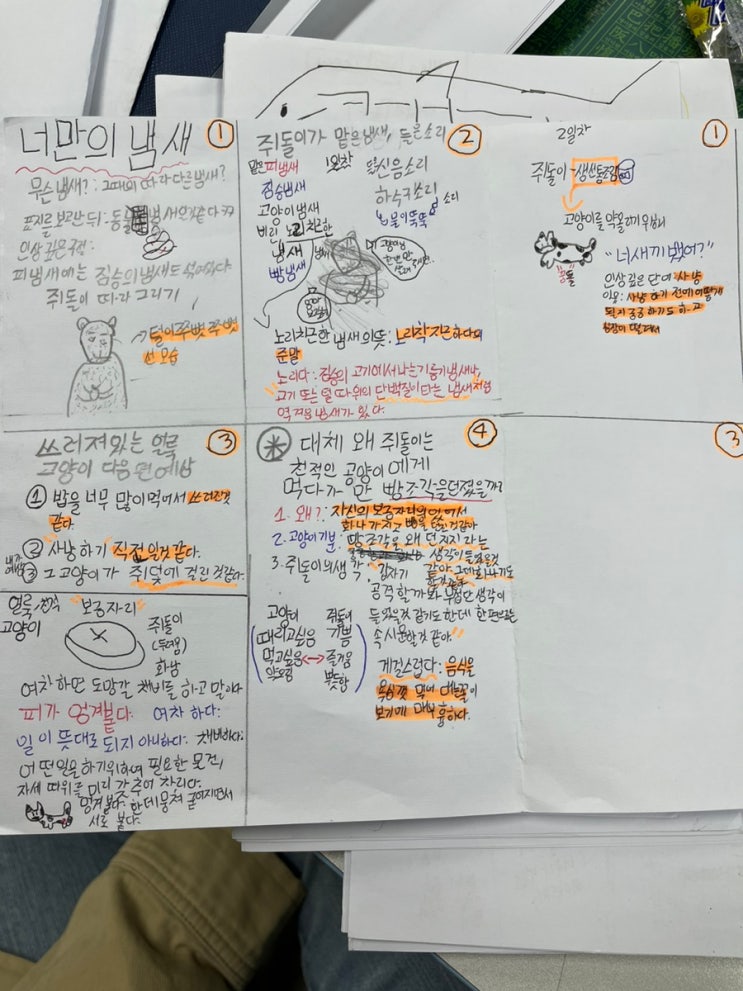 너만의 냄새
①
무슨 냄새?: 그때의 따라 다른 냄새?
표지를 보고난 뒤 - 동물 냄새 인것 같다
인상 깊은 구절:
피냄새에는 짐승의 냄새도 섞여있다
쥐돌이 따라 그리기
털이 쭈뼛쭈뼛
선 모습
쥐돌이가 맡은 냄새, 들은소리
②
맡은 피냄새
1일차
신음소리
짐승냄새
하수구소리
고양이냄새
물이 뚝뚝 소리
비린
노리치근한
냄새
빵냄새
노리치근한 냄새의 뜻: 노리착지근하다의
준말
노리다: 짐승의 고기에서 나는 기름기 냄새나
고기 또는 털 따위의 단백질이 타는 냄새처럼
역겨운 냄새가 있다.
2일차
①
쥐돌이 - 생선통조림
고양이를 약올리기 위해서
"너새끼 뱄어?"
인상 깊은 단어: 사냥
이유: 사냥 하기 전에 어떻게
될지 궁금하기도 하고
쓰러져있는 얼룩
고양이 다음 편 예상
③
① 밥을 너무 많이 먹어서 쓰러진것
같다.
② 사냥하기 직전일것 같다.
내가
예상
③ 그 고양이가 쥐덫에 걸린 것같다.
얼룩
고양이
"보금자리"
쥐돌이
화남
여차 하면 도망갈 채비를 하고 말이다
피가 엉겨붙다. 여차 하다:
일이 뜻대로 되지 아니하다. 채비하다:
어떤일을 하기위하여 필요한 물건,
자세 따위를 미리 갖추어 차리다.
엉겨붙다: 한데 뭉쳐 굳어지면서
서로 붙다.
대체 왜 쥐돌이는
④
천적인 공양이 에게
먹다가 만 빵조각을 던졌을까?
1. 왜?: 자신의 보금자리에 있어서
화나 가지고 빵을 던질것같아
2. 고양이 기분: 빵 조각을 왜 던지지 라는
생각이 들었을것
같아. 그런데 화나기도
3. 쥐돌이의 생각: 갑자기
공격할까봐 무섭단 생각이
들었을것 같기도 한데 한편으론
속 시원할것 같아.
고양이
쥐돌이
때리고싶음
기쁨
먹고싶음 ↔ 즐거움
뿌듯함
게걸스럽다: 음식을
욕심껏 먹어 대는 꼴이
보기에 매우 흉하다.
③